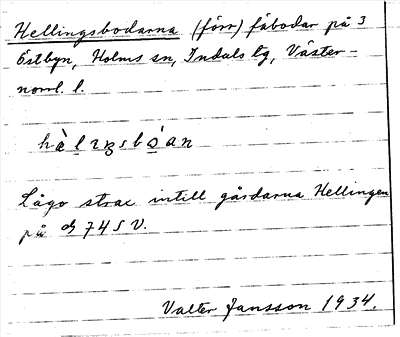 Hellingsbodarna (förr) fäbodar på 3
Östbyn, Holms sn, Indals tg, Väster-
norrl. l.
hὰlιŋsbo̗an
Lågo strax intill gårdarna Hellingen
på 745 V.
Valter Jansson 1934.